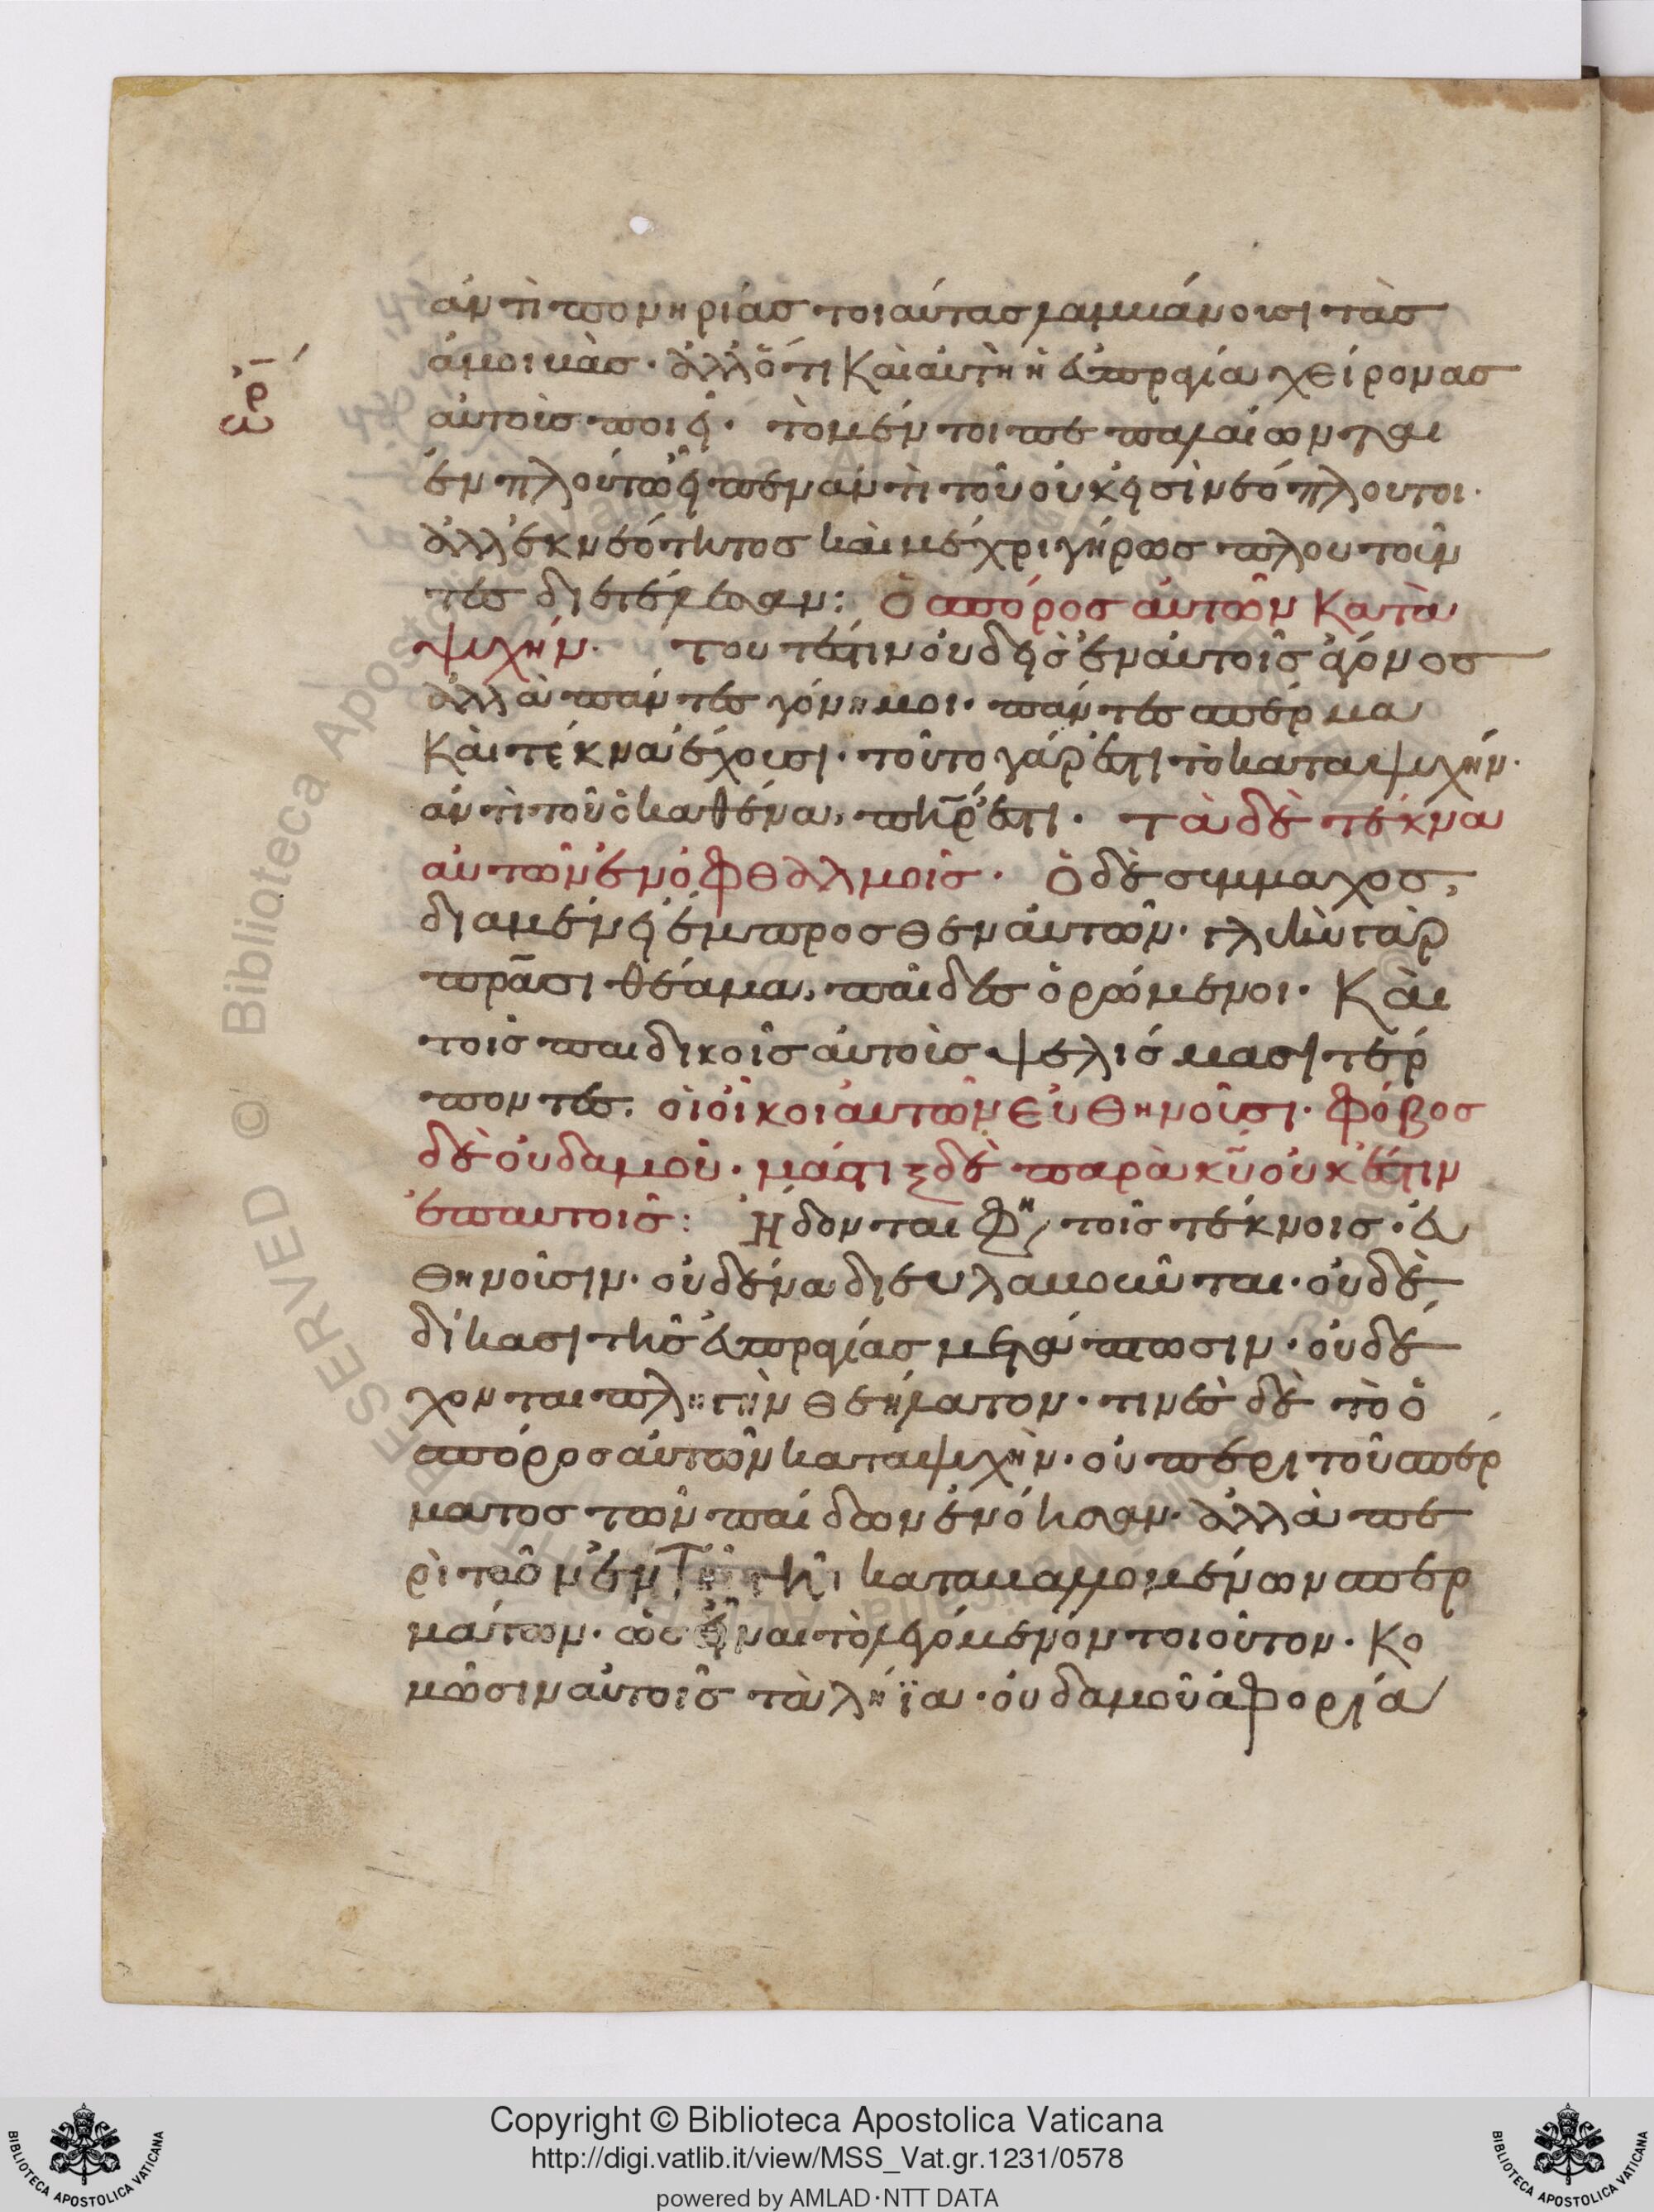 ἀντὶ πονηρίας τοιαύτας λαμβάνουσι τὰς
ἀμοιβὰς. ἀλλ' ὅτι καὶ αὐτὴ ἡ εὐπραγία χείρονας
αὐτοὺς ποιεῖ. τὸ μέντοι πεπαλαίωνται
ἐν πλούτω εἶπεν ἀντὶ τοῦ οὐκ εἰσὶ νεόπλουτοι.
ἀλλ' ἐκ νεότητος καὶ μέχρι γήρως πλουτοῦν
τες διετέλεσαν: Ὁ σπόρος αὐτῶν κατὰ
ψυχήν. τουτέστιν οὐδεὶς ἐν αὐτοῖς ἄγονος
ἀλλὰ πάντες γόνιμοι. πάντες σπέρμα
καὶ τέκνα ἔχουσι. τοῦτο γάρ ἐστι τὸ κατα ψυχήν.
ἀντὶ τοῦ ὁ καθένα πατήρ ἐστι. τὰ δὲ τέκνα
αὐτῶν ἐν ὀφθαλμοῖς. Ὁ δὲ σύμμαχος,
διαμένει ἔμπροσθεν αὐτῶν. γλυκὺ γὰρ
πρᾶσι θέαμα, παῖδες ὁρώμενοι. καὶ
τοῖς παιδικοῖς αὐτοὺς ψελίσμασι τέρ
ποντες. οἱ οἶκοι αὐτῶν εὐθηνοῦσι. φόβος
δὲ οὐδαμοῦ. μάστιξ δὲ παρὰ κυ οὐκ ἔστιν
ἐπ' αὐτοῖς: Ἥδονται φη τοῖς τέκνοις. εὐ
θηνοῦσιν. οὐδένα διευλαβοῦνται. οὐδὲ
δίκασι τῆς εὐπραγίας μεταπίπτωσιν. οὐ δέ
χονται πληγὴν θεήλατον. τινὲς δὲ τὸ ὁ
σπόρος αὐτῶν κατα ψυχὴν. οὐ περὶ τοῦ σπέρ
ματος τῶν παίδων ἐνόησαν. ἀλλὰ πε
ρὶ τῶν ἐν τῆ γῆ καταβαλλομένων σπερ
μάτων. ὡς εἶναι τὸ λεγόμενον τοιοῦτον. κο
μῶσιν αὐτοῖς τὰ λήϊα. οὐδαμοῦ ἀφορία
Copyright © Biblioteca Apostolica Vaticana
http://digi.vatlib.it/view/MSS_Vat.gr.1231/0578
powered by AMLAD·NTT DATA
BIBLIOTECA APOSTOLICA VATICANA
BIBLIOTECA APOSTOLICA VATICANA